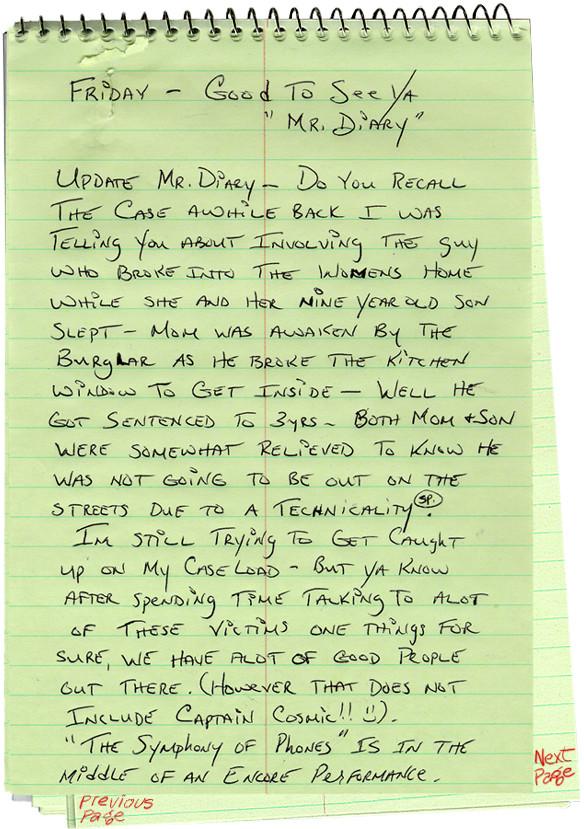 FRIDAY - GOOD TO SEE YA
"MR. DIARY"
UPDATE MR. DIARY - DO YOU RECALL
THE CASE AWHILE BACK I WAS
TELLING YOU ABOUT INVOLVING THE GUY
WHO BROKE INTO THE WOMENS HOME
WHILE SHE AND HER NINE YEAR OLD SON
SLEPT - MOM WAS AWAKEN BY THE
BURGLAR AS HE BROKE THE KITCHEN
WINDOW TO GET INSIDE - WELL HE
GOT SENTENCED TO 3YRS - BOTH MOM + SON
WERE SOMEWHAT RELIEVED TO KNOW HE
WAS NOT GOING TO BE OUT ON THE
STREETS DUE TO A TECHNICALITY SP. .
IM STILL TRYING TO GET CAUGHT
UP ON MY CASELOAD - BUT YA KNOW
AFTER SPENDING TIME TALKING TO ALOT
OF THESE VICTIMS ONE THINGS FOR
SURE, WE HAVE ALOT OF GOOD PEOPLE
OUT THERE. (HOWEVER THAT DOES NOT
INCLUDE CAPTAIN COSMIC!! :)).
"THE SYMPHONY OF PHONES" IS IN THE
MIDDLE OF AN ENCORE PERFORMANCE.
Next
Page
Previous
Page